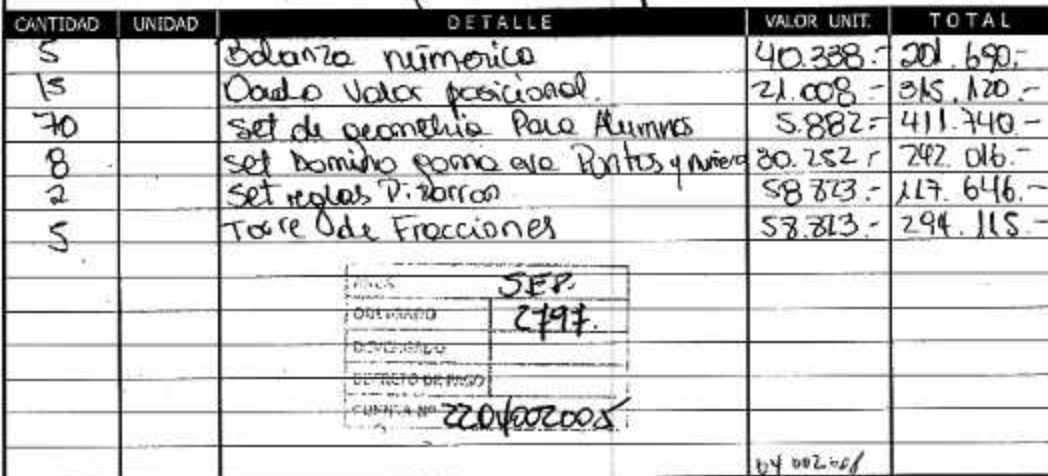 CANTIDAD UNIDAD DETALLE VALOR UNIT. TOTAL
5 Balanza númerica 40.338.- 201.690.-
15 Dado Valor posicional. 21.008.- 315.120.-
70 Set de geometria Para Alumnos 5.882.- 411.740.-
8 Set Domino goma eva Puntos y número 30.252.- 242.016.-
2 Set reglas Pizarron 58.823.- 117.646.-
5 Torre de Fracciones 58.823.- 294.115.-
SEP.
OBLIGADO 2797.
DEVENGADO
DECRETO DE PAGO
CUENTA Nº